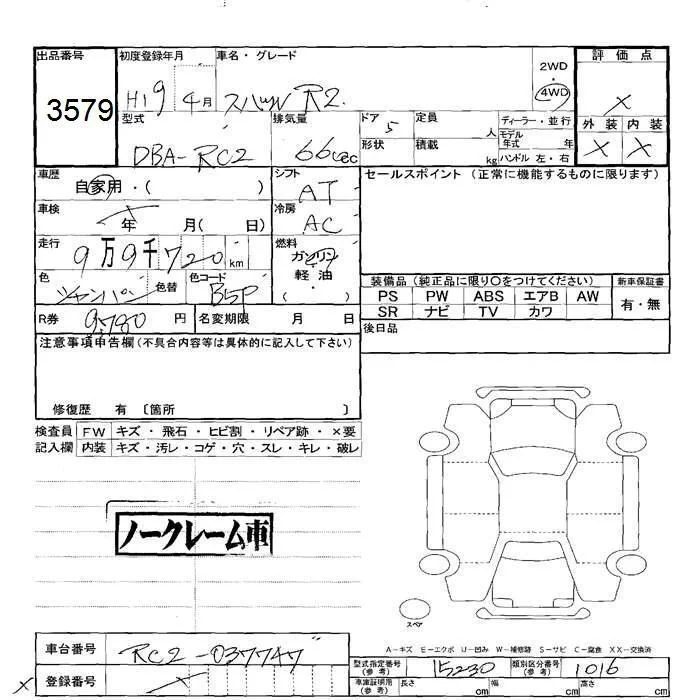 出品番号 初度登録年月 車名・グレード 2WD ・ 4WD 評価点
3579 H19 4月 スバル R2 ×
型式 排気量 ドア 5 定員 人 ディーラー・並行 外装 内装
DBA-RC2 660cc 形状 積載 kg モデル年式 年 ハンドル 左・右 × ×
車歴 自家用・( ) シフト AT セールスポイント (正常に機能するものに限ります)
車検 年 月( 日) 冷房 AC
走行 9万9千720km 燃料 ガソリン 軽油 ( ・ )
色 シャンパン 色替 色コード B5P 装備品 (純正品に限り○をつけてください) 新車保証書
PS PW ABS エアB AW 有・無
SR ナビ TV カワ
R券 9,780 円 名変期限 月 日 後日品
注意事項申告欄(不具合内容等は具体的に記入して下さい)
修復歴 有 〔箇所 〕
検査員 FW キズ・飛石・ヒビ割・リペア跡・×要
記入欄 内装 キズ・汚レ・コゲ・穴・スレ・キレ・破レ
ノークレーム車
スペア
A-キズ E-エクボ U-凹み W-補修跡 S-サビ C-腐食 XX-交換済
車台番号 RC2-037747 型式指定番号(参考) 15230 類別区分番号(参考) 1016
× 登録番号 × 車庫証明用(参考) 長さ cm 幅 cm 高さ cm